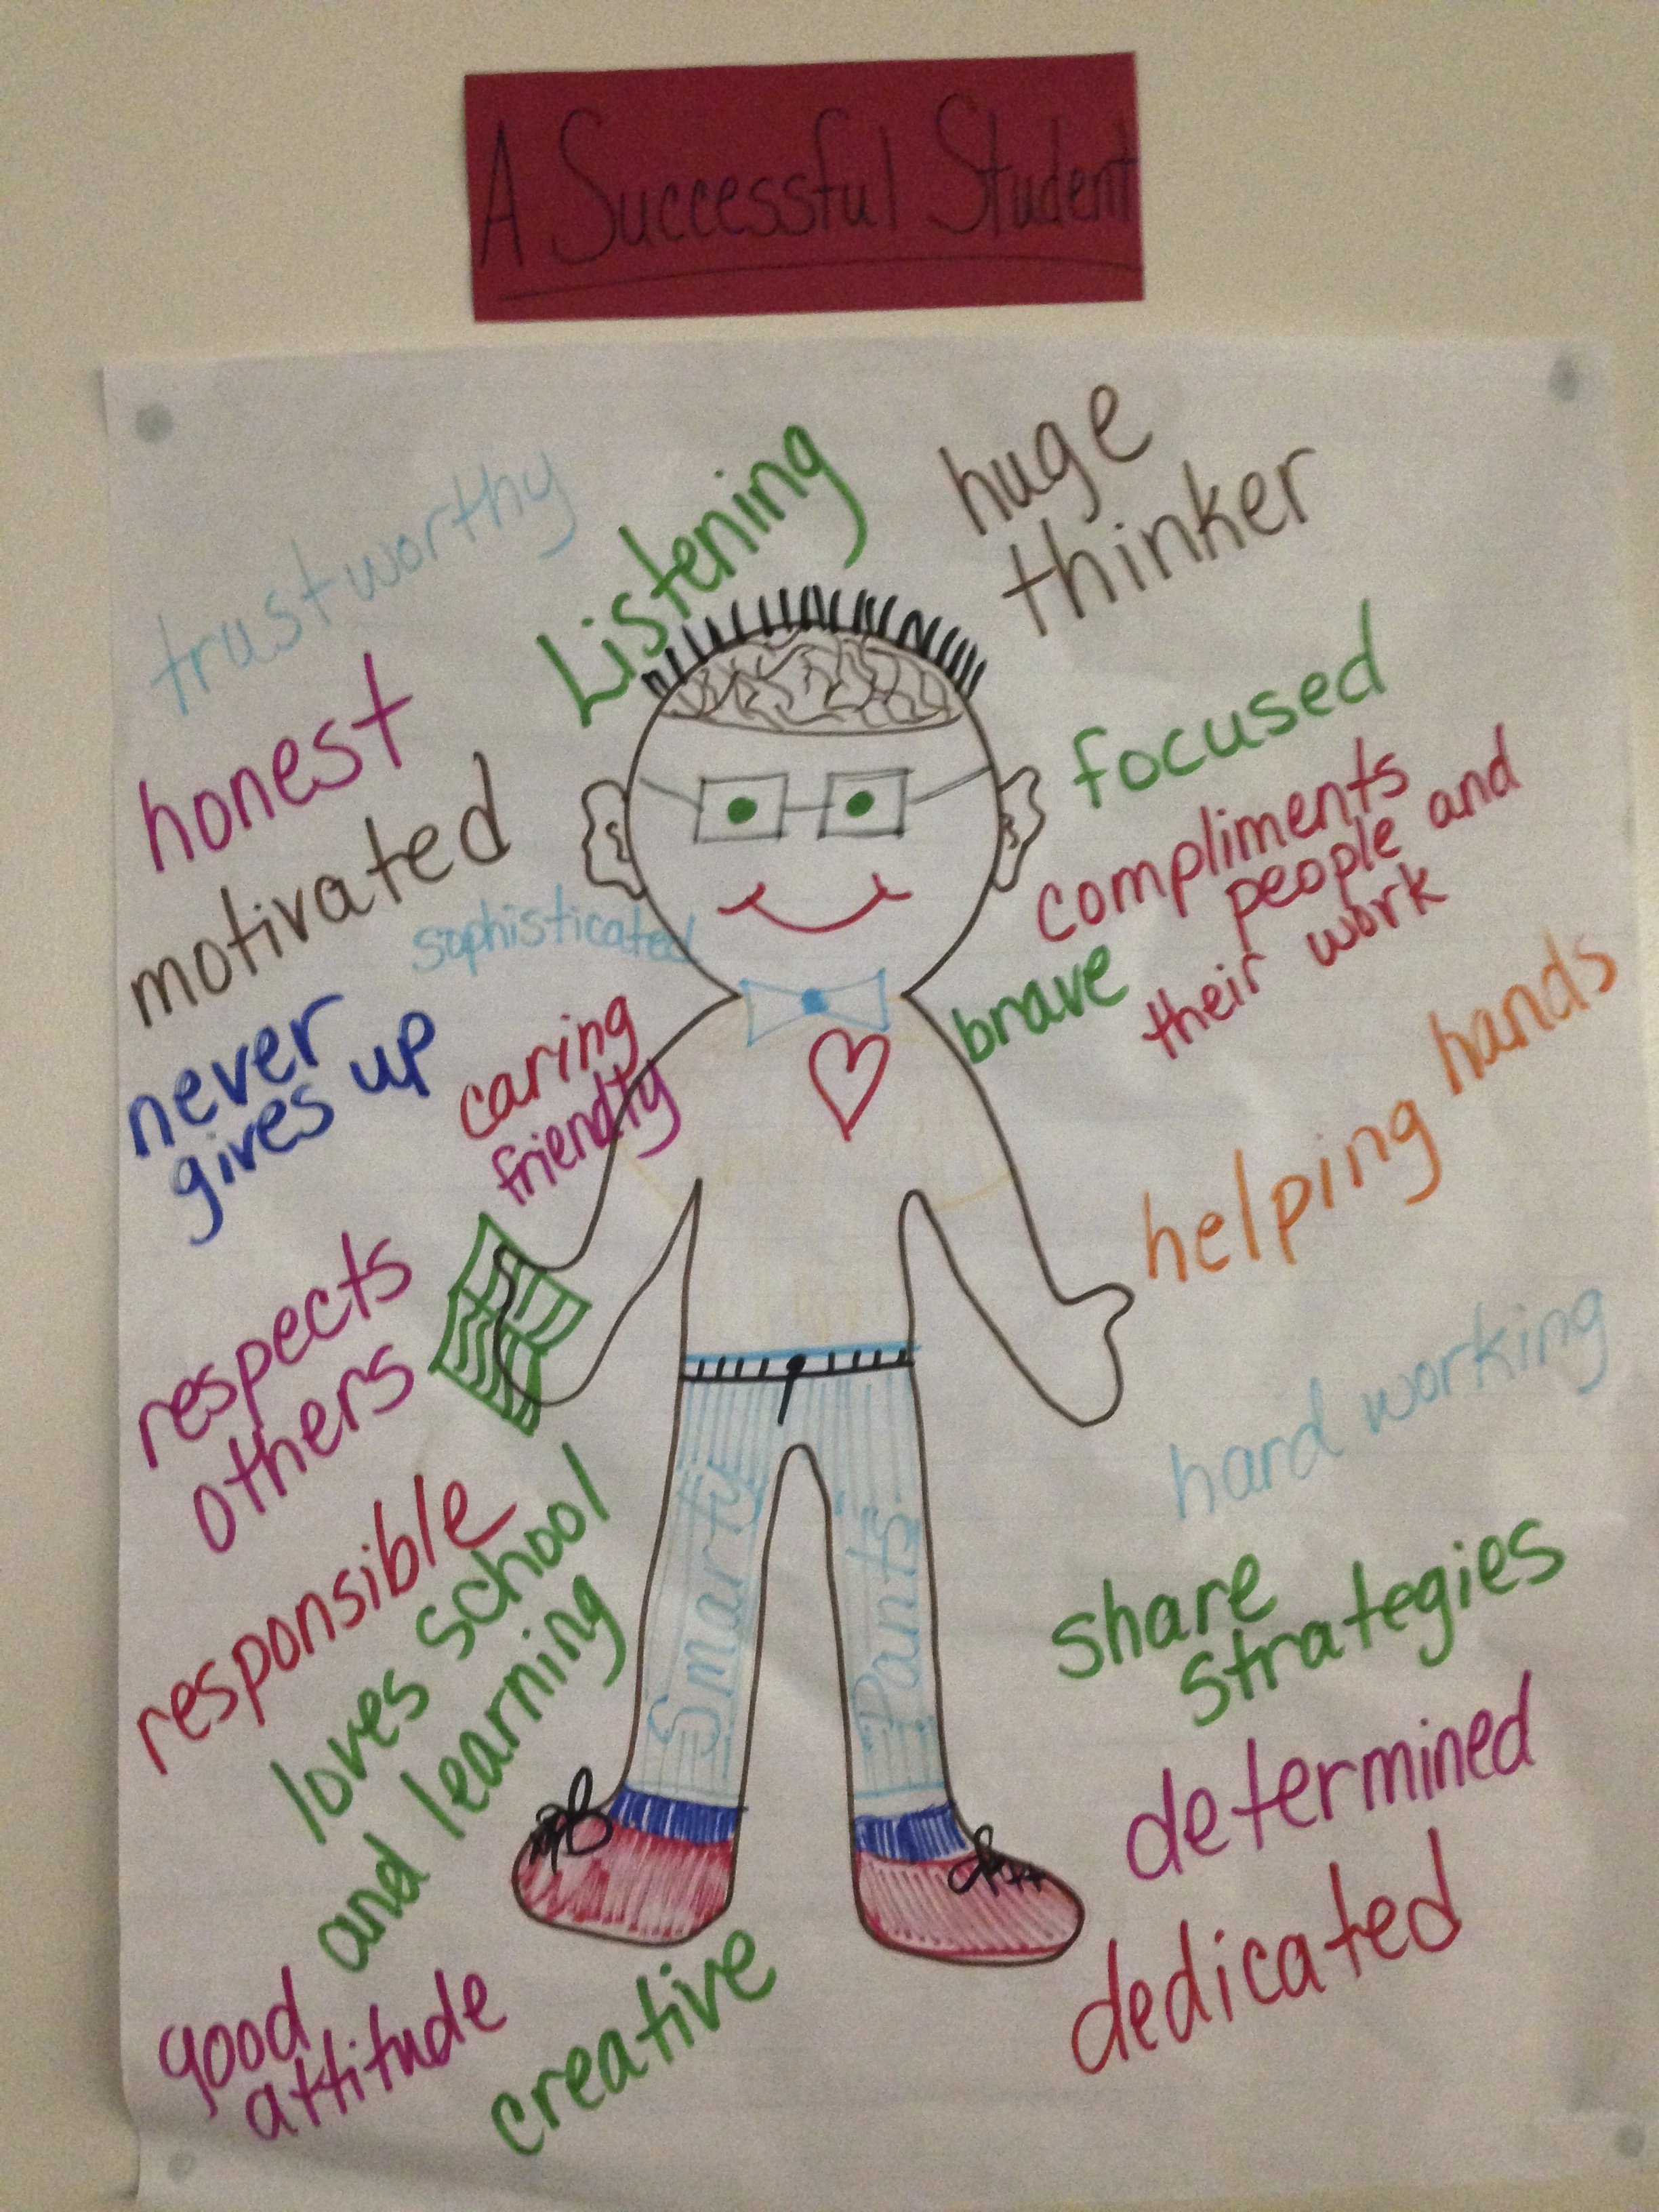 A Successful Student
trustworthy
Listening
huge
thinker
honest
motivated
sophisticated
focused
compliments
people and
their work
brave
never
gives up
caring
friendly
helping hands
respects
others
hard working
responsible
loves school
and learning
Smarty
Pants
share
strategies
determined
dedicated
good
attitude
creative